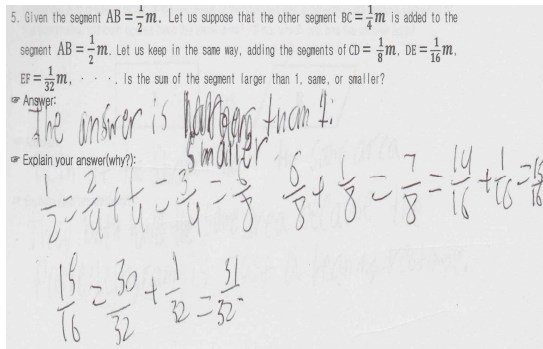 5. Given the segment AB = 1/2 m. Let us suppose that the other segment BC = 1/4 m is added to the
segment AB = 1/2 m. Let us keep in the same way, adding the segments of CD = 1/8 m, DE = 1/16 m,
EF = 1/32 m, · · · . Is the sum of the segment larger than 1, same, or smaller?
☞ Answer:
The answer is than 1.
smaller
☞ Explain your answer(why?):
1/2 = 2/4 + 1/4 = 3/4 = 6/8 6/8 + 1/8 = 7/8 = 14/16 + 1/16 = 15/16
15/16 = 30/32 + 1/32 = 31/32